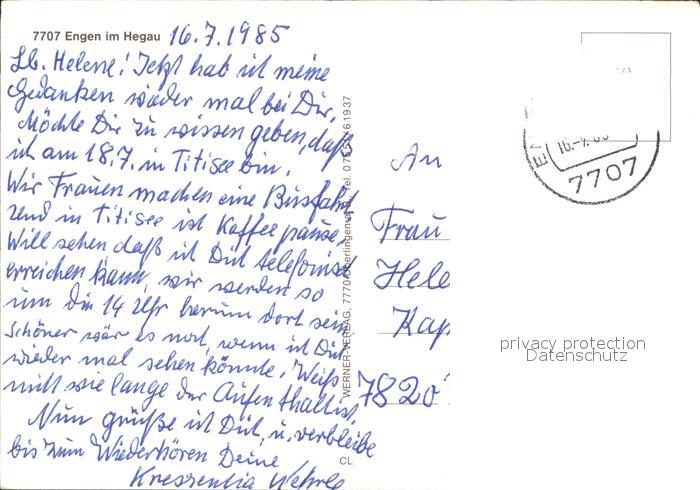 7707 Engen im Hegau 16.7.1985
Lb. Helene! Jetzt hab ich meine
Gedanken wieder mal bei Dir,
Möchte Dir zu wissen geben, daß
ich am 18.7. in Titisee bin.
Wir Frauen machen eine Busfahrt
und in Titisee ist Kaffeepause.
Will sehen daß ich Dich telefonisch
erreichen kann, wir werden so
um die 14 Uhr herum dort sein
Schöner wär es noch, wenn ich Dich
wieder mal sehen könnte. Weiß
nicht wie lange der Aufenthalt ist.
Nun grüße ich Dich, u. verbleibe
bis zum Wiederhören Deine
Kreszentia
WERNER-VERLAG, 7770
CL
An
Frau
Hele
Kap
7820
7707
privacy protection
Datenschutz